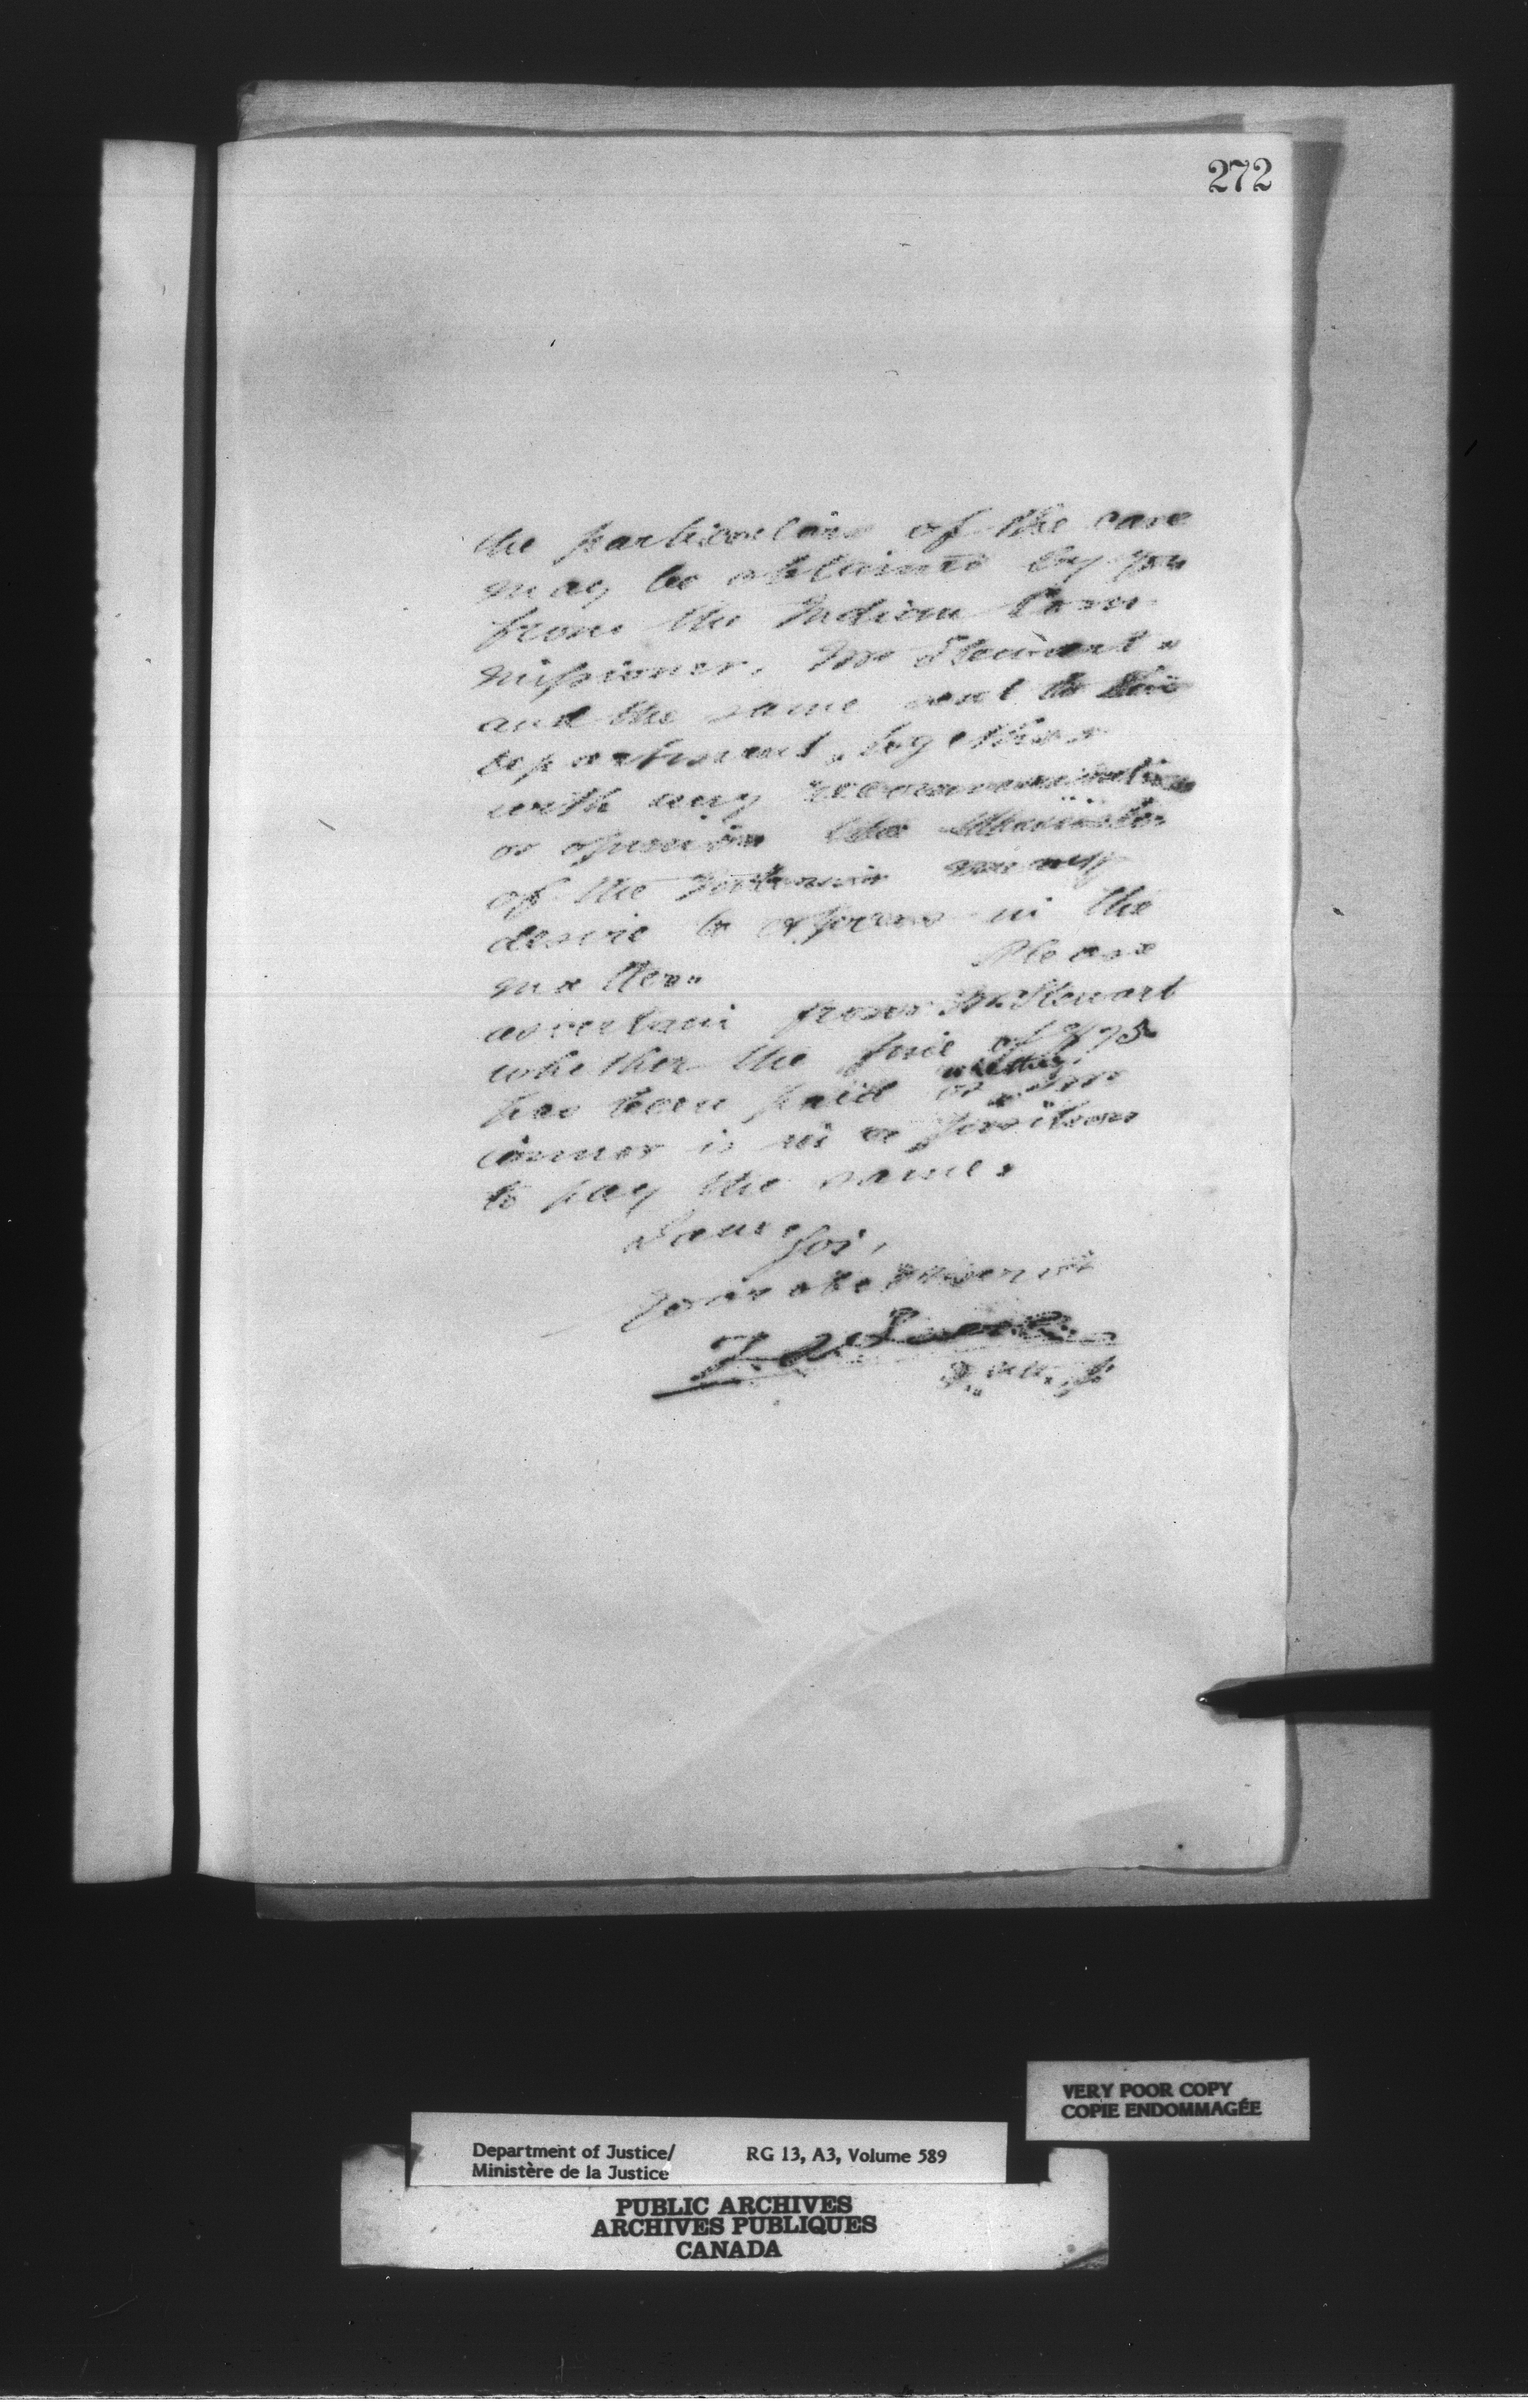 272
the particulars of the case
may be obtained by you
from the Indian Com
missioner, Mr Stewart,
and the same sent to this
department, together
with any recommendation
or opinion the Minister
of the Interior may
desire to express in the
matter. Please
ascertain from Mr Stewart
whether the fine of $75
whether
has been paid or
Connor is in a position
to pay the same.
I am
Sir,
Your obedt servant
Z. A. Lash
D. M. J.
VERY POOR COPY
COPIE ENDOMMAGÉE
Department of Justice/ RG 13, A3, Volume 589
Ministère de la Justice
PUBLIC ARCHIVES
ARCHIVES PUBLIQUES
CANADA